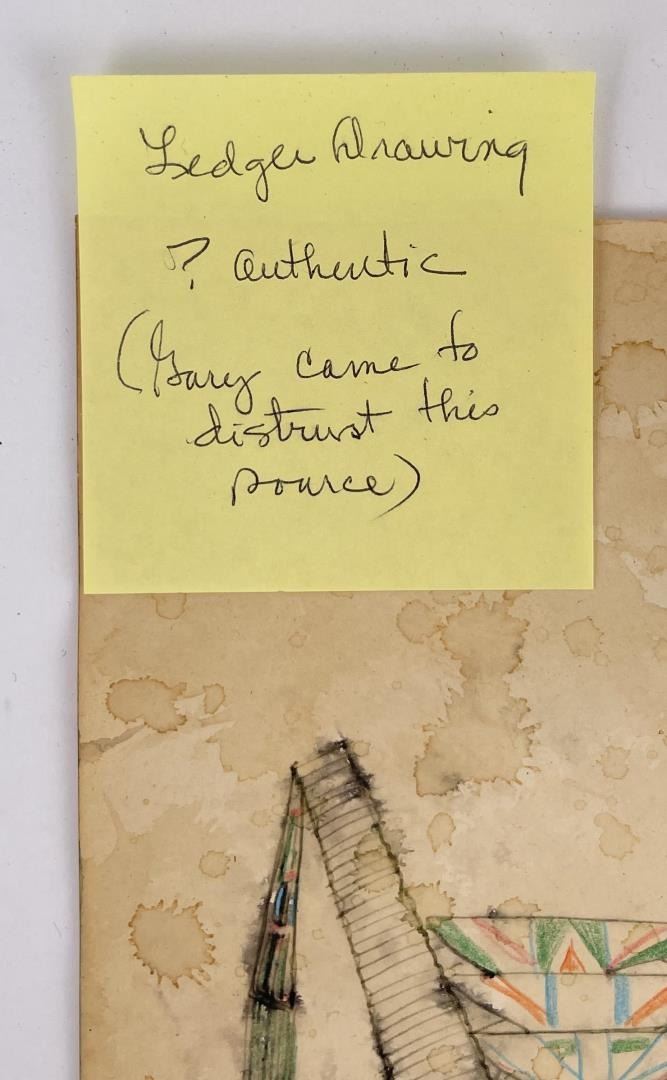 Ledger Drawing
? authentic
(Gary came to
distrust this
source)